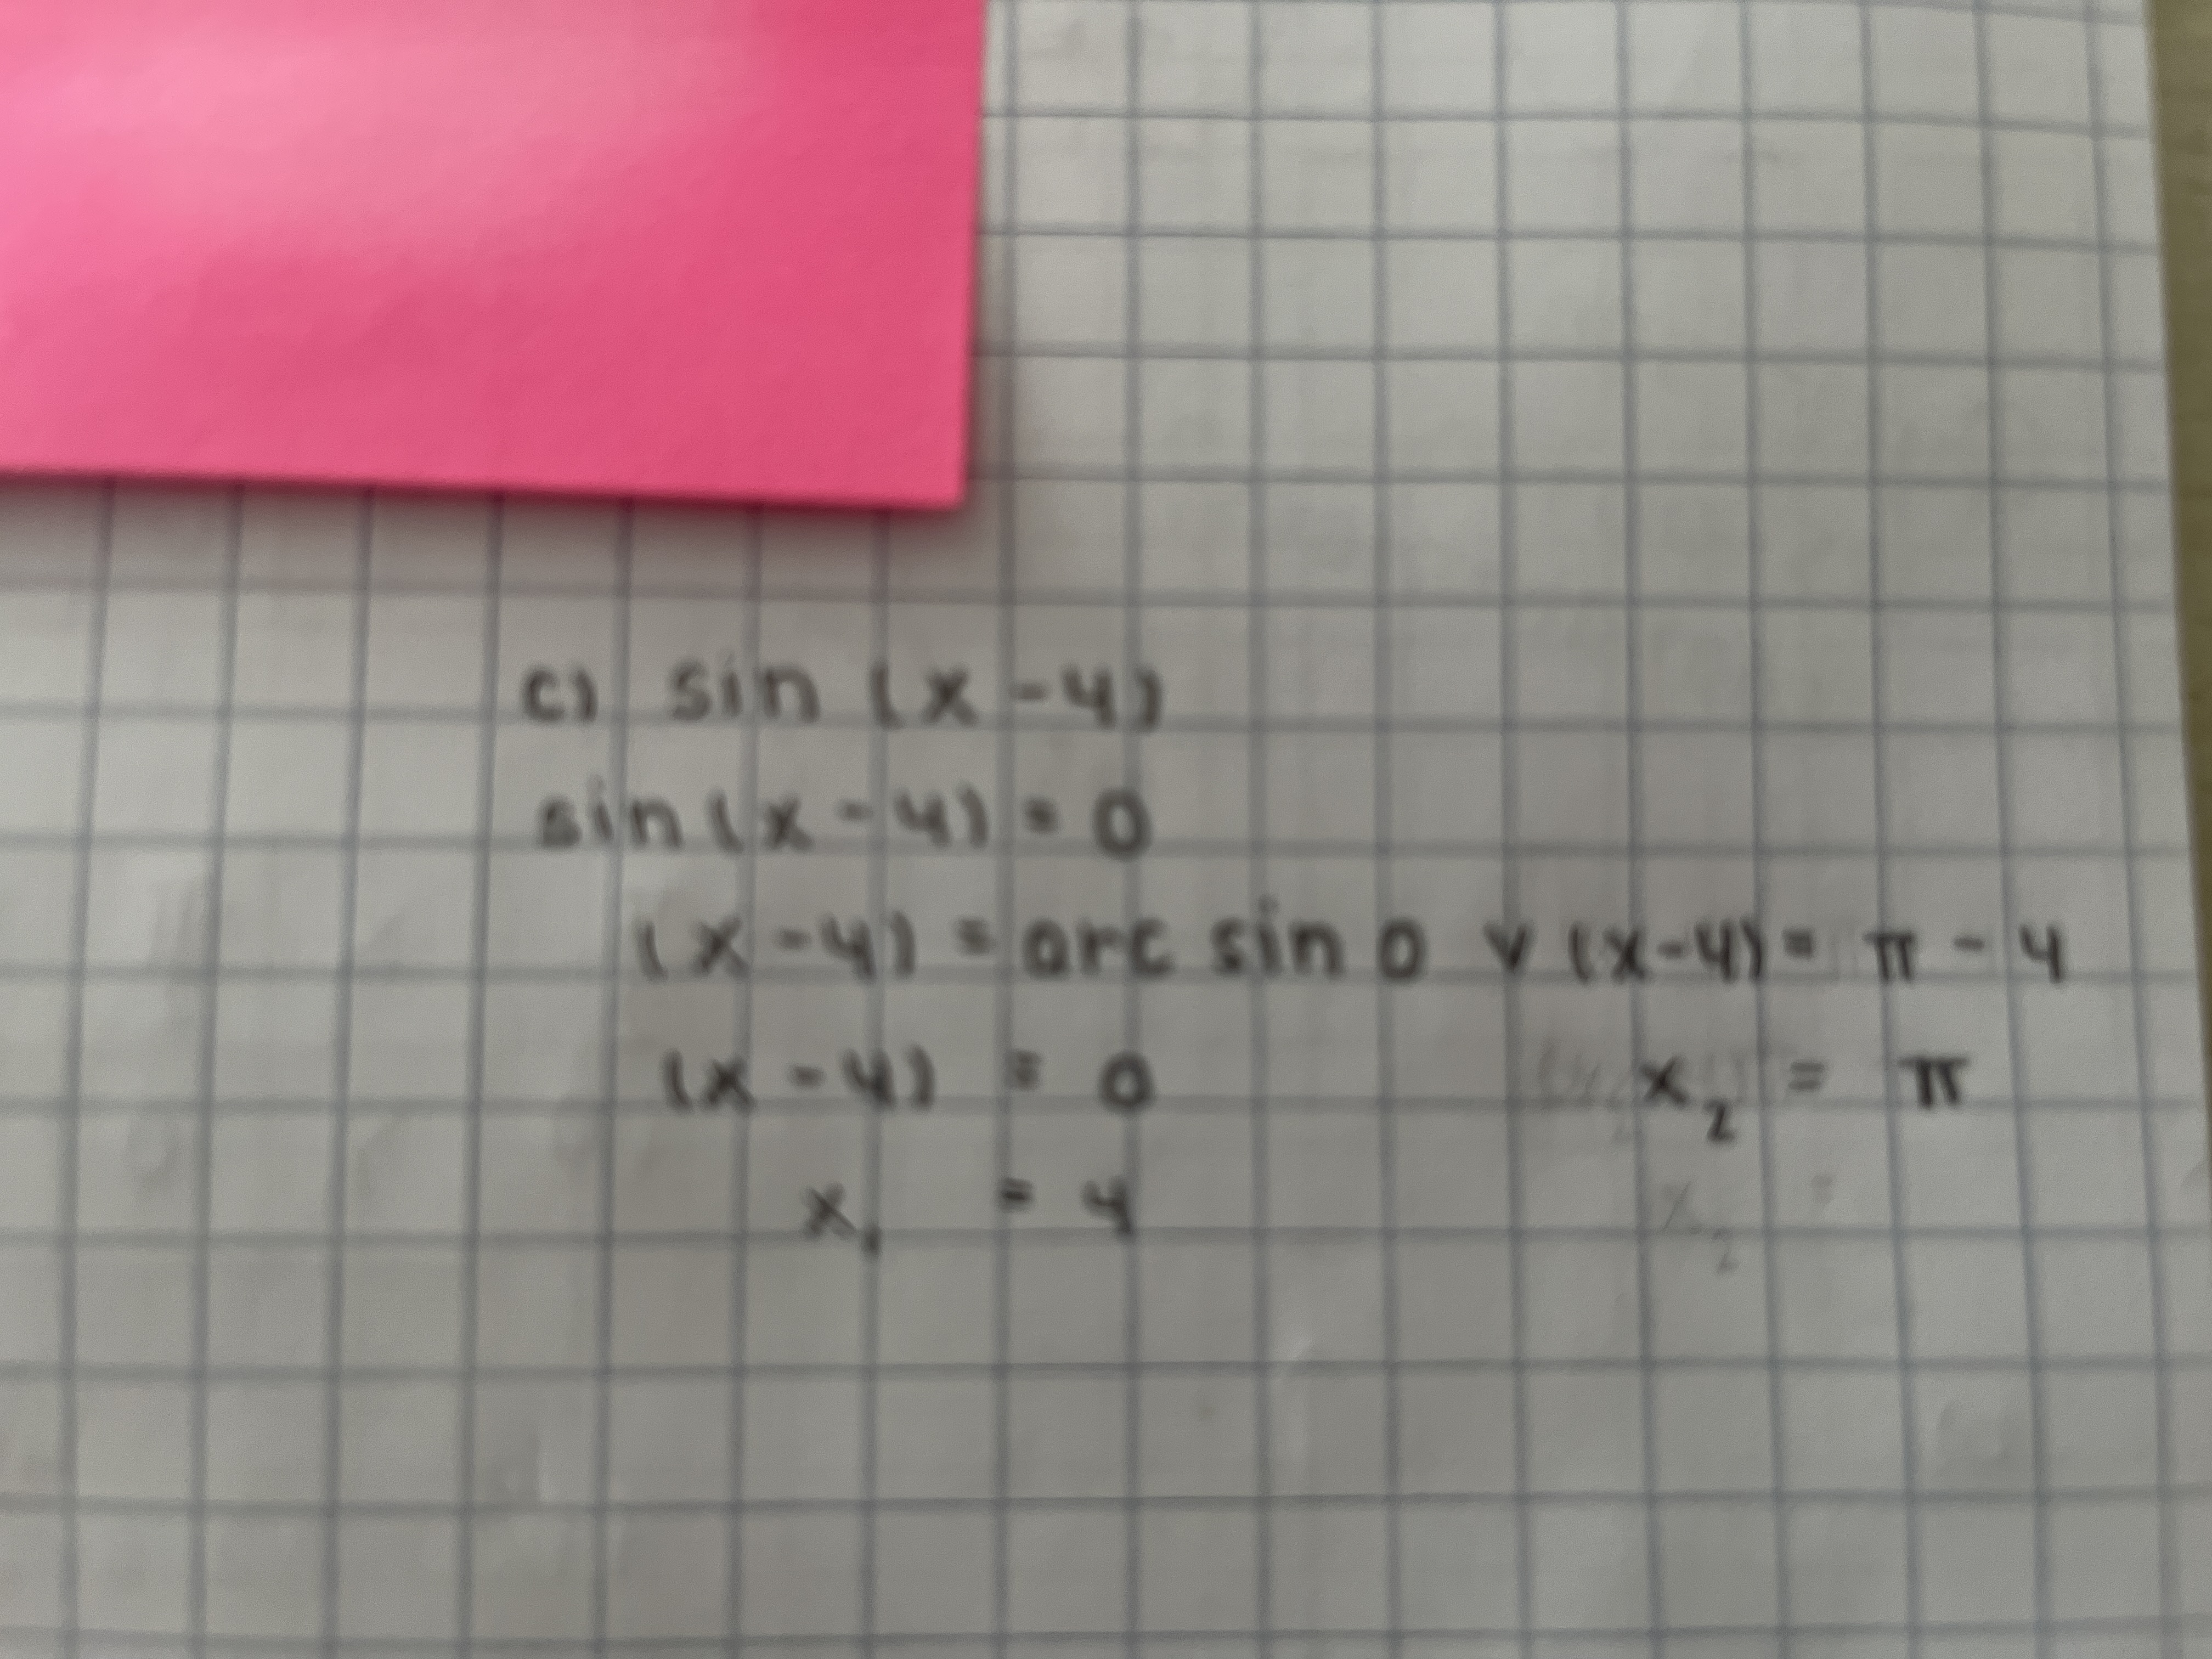 c) sin (x - 4)
sin (x - 4) = 0
(x - 4) = arc sin 0 v (x-4) = π - 4
(x - 4) = 0 x₂ = π
x₁ = 4